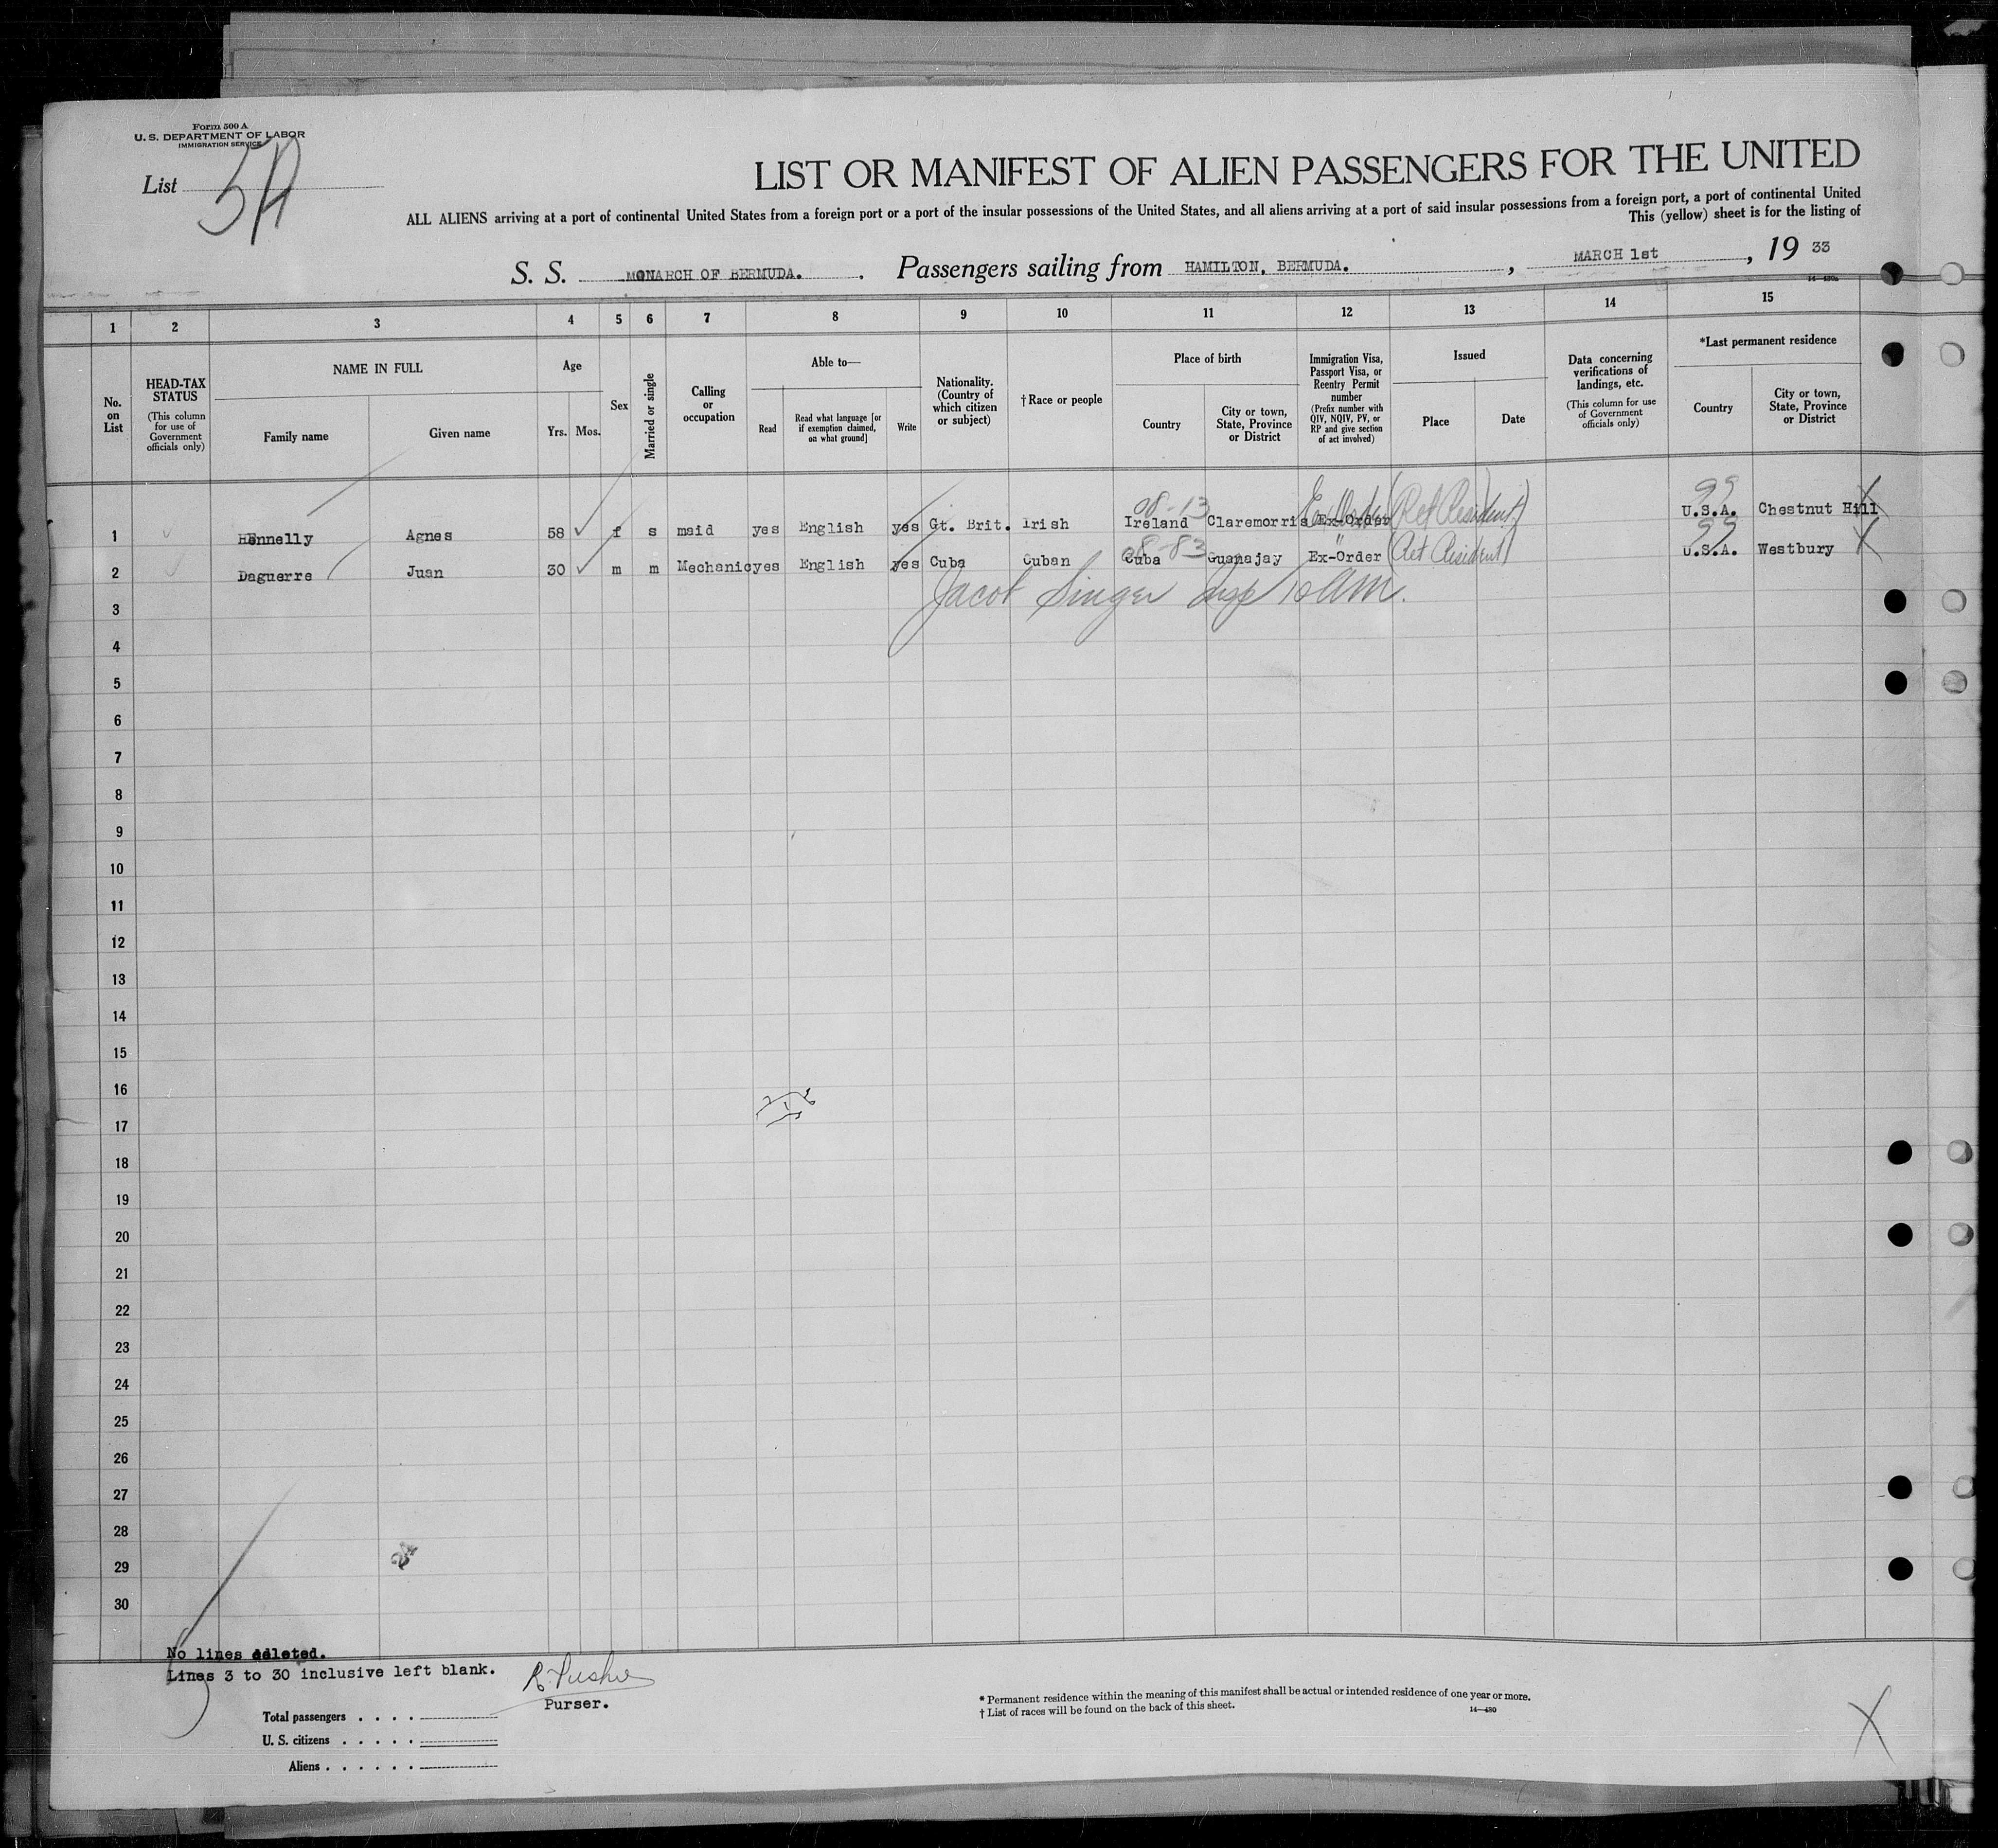 Form 500 A
U. S. DEPARTMENT OF LABOR
IMMIGRATION SERVICE
List 5A
LIST OR MANIFEST OF ALIEN PASSENGERS FOR THE UNITED
ALL ALIENS arriving at a port of continental United States from a foreign port or a port of the insular possessions of the United States, and all aliens arriving at a port of said insular possessions from a foreign port, a port of continental United
This (yellow) sheet is for the listing of
S. S. MONARCH OF BERMUDA. Passengers sailing from HAMILTON, BERMUDA. , MARCH 1st , 19 33
14—430a
1 2 3 4 5 6 7 8 9 10 11 12 13 14 15
No. on List
HEAD-TAX STATUS
(This column for use of Government officials only)
NAME IN FULL
Family name Given name
Age
Yrs. Mos.
Sex
Married or single
Calling or occupation
Able to—
Read
Read what language [or if exemption claimed, on what ground]
Write
Nationality. (Country of which citizen or subject)
†Race or people
Place of birth
Country
City or town, State, Province or District
Immigration Visa, Passport Visa, or Reentry Permit number
(Prefix number with QIV, NQIV, PV, or RP and give section of act involved)
Issued
Place Date
Data concerning verifications of landings, etc.
(This column for use of Government officials only)
*Last permanent residence
Country
City or town, State, Province or District
08-13 (Ret Resident) 99
1 Hennelly Agnes 58 f s maid yes English yes Gt. Brit. Irish Ireland Claremorris Ex-Order U.S.A. Chestnut Hill
08-83 (Ret Resident) 99
2 Daguerre Juan 30 m m Mechanic yes English yes Cuba Cuban Cuba Guanajay Ex-Order U.S.A. Westbury
Jacob Singer Insp
3
4
5
6
7
8
9
10
11
12
13
14
15
16
17
18
19
20
21
22
23
24
25
26
27
28
29
30
No lines deleted.
Lines 3 to 30 inclusive left blank.
Purser.
Total passengers
U. S. citizens
Aliens
* Permanent residence within the meaning of this manifest shall be actual or intended residence of one year or more.
† List of races will be found on the back of this sheet.
14—430